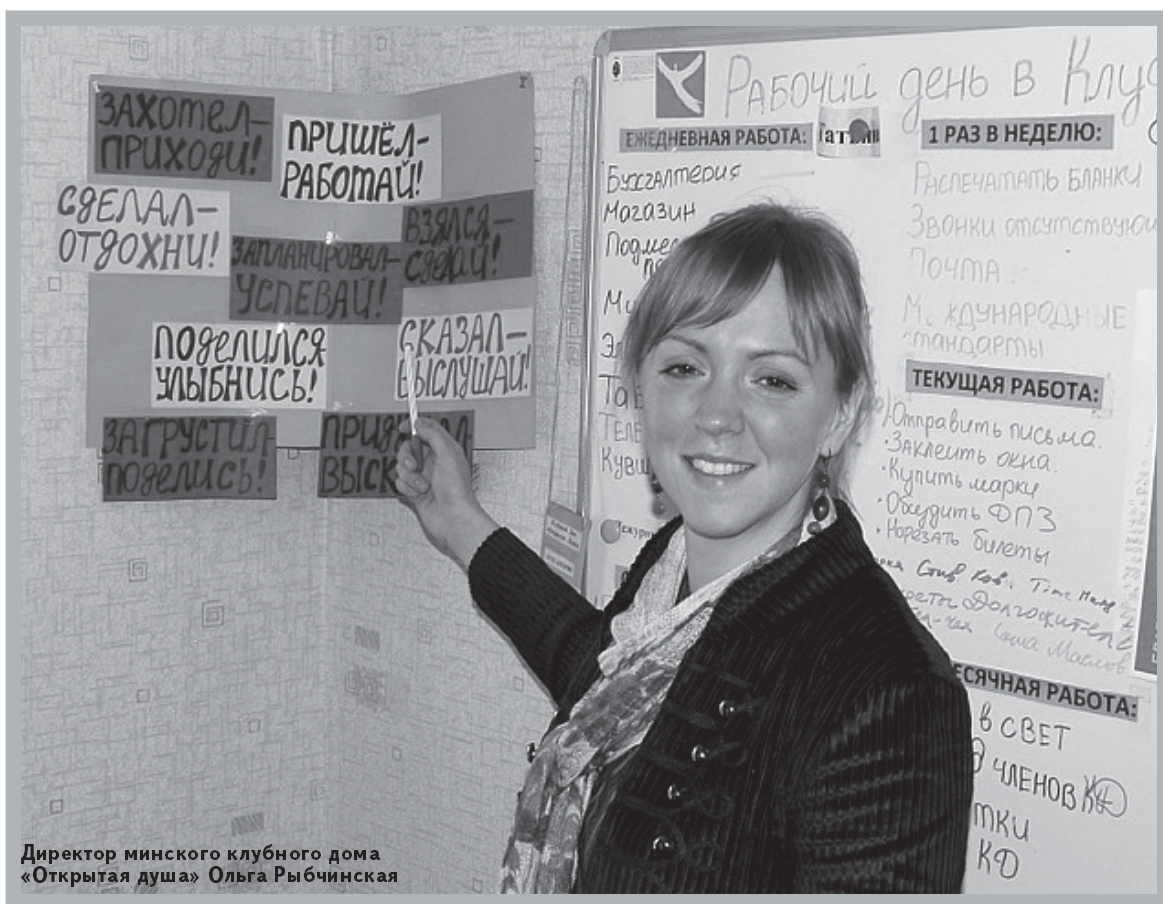 ЗАХОТЕЛ-
ПРИХОДИ!
ПРИШЁЛ-
РАБОТАЙ!
СДЕЛАЛ-
ОТДОХНИ!
ВЗЯЛСЯ-
СДЕЛАЙ!
ЗАПЛАНИРОВАЛ-
УСПЕВАЙ!
ПОДЕЛИЛСЯ
УЛЫБНИСЬ!
СКАЗАЛ-
ВЫСЛУШАЙ!
ЗАГРУСТИЛ-
ПОДЕЛИСЬ!
РАБОЧИЙ день в Клуб
ЕЖЕДНЕВНАЯ РАБОТА:
Бухгалтерия
Магазин
1 РАЗ В НЕДЕЛЮ:
РАСПЕЧАТАТЬ БЛАНКИ
ЗВОНКИ отсутствую
ПОЧТА
М. ЖДУНАРОДНЫЕ
стандарты
ТЕКУЩАЯ РАБОТА:
Отправить письма.
· Заклеить окна.
· Купить марки
· Обсудить ФПЗ
· Нарезать билеты
Стив
Долгожител
Саша Маслов
ЕСЯЧНАЯ РАБОТА:
в СВЕТ
ЧЛЕНОВ КД
ТКИ
КД
Директор минского клубного дома
«Открытая душа» Ольга Рыбчинская